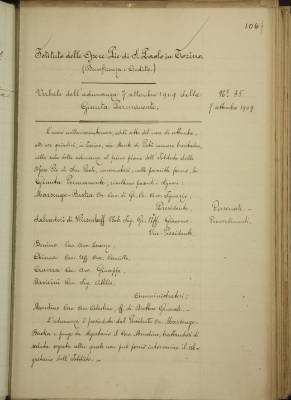 106
Istituto delle Opere Pie di S. Paolo in Torino
(Beneficenza e Credito)
Verbale dell'adunanza 7 settembre 1909 della
Giunta Permanente.
N° 35
7 settembre 1909
L'anno millenovecentonove, addì sette del mese di settembre,
alle ore quindici, in Torino, via Monte di Pietà numero trentadue,
nella sala delle adunanze al primo piano dell'Istituto delle
Opere Pie di San Paolo, convocatasi, nelle prescritte forme, la
Giunta Permanente, risultano presenti i Signori:
Marsengo-Bastia Gr. Cr. Avv. Ignazio
Presidente,
Salvadori di Wiesenhoff Nob. Ing. Gr. Uff. Giacomo
Vice-Presidente.
Presenti.
Cav. Avv. Lorenzo
Chiesa Cav. Uff. Avv. Camillo
Cravosa Cav. Avv. Giuseppe
Cav. Ing. Attilio
Amministratori;
Cav. Avv. Celestino, ff. di Direttore Generale.
L'adunanza è presieduta dal Presidente Avv. Marsengo-
Bastia e funge da Segretario il Cav. trattandosi di
seduta segreta alla quale non può perciò intervenire il Se-
gretario dell'Istituto.